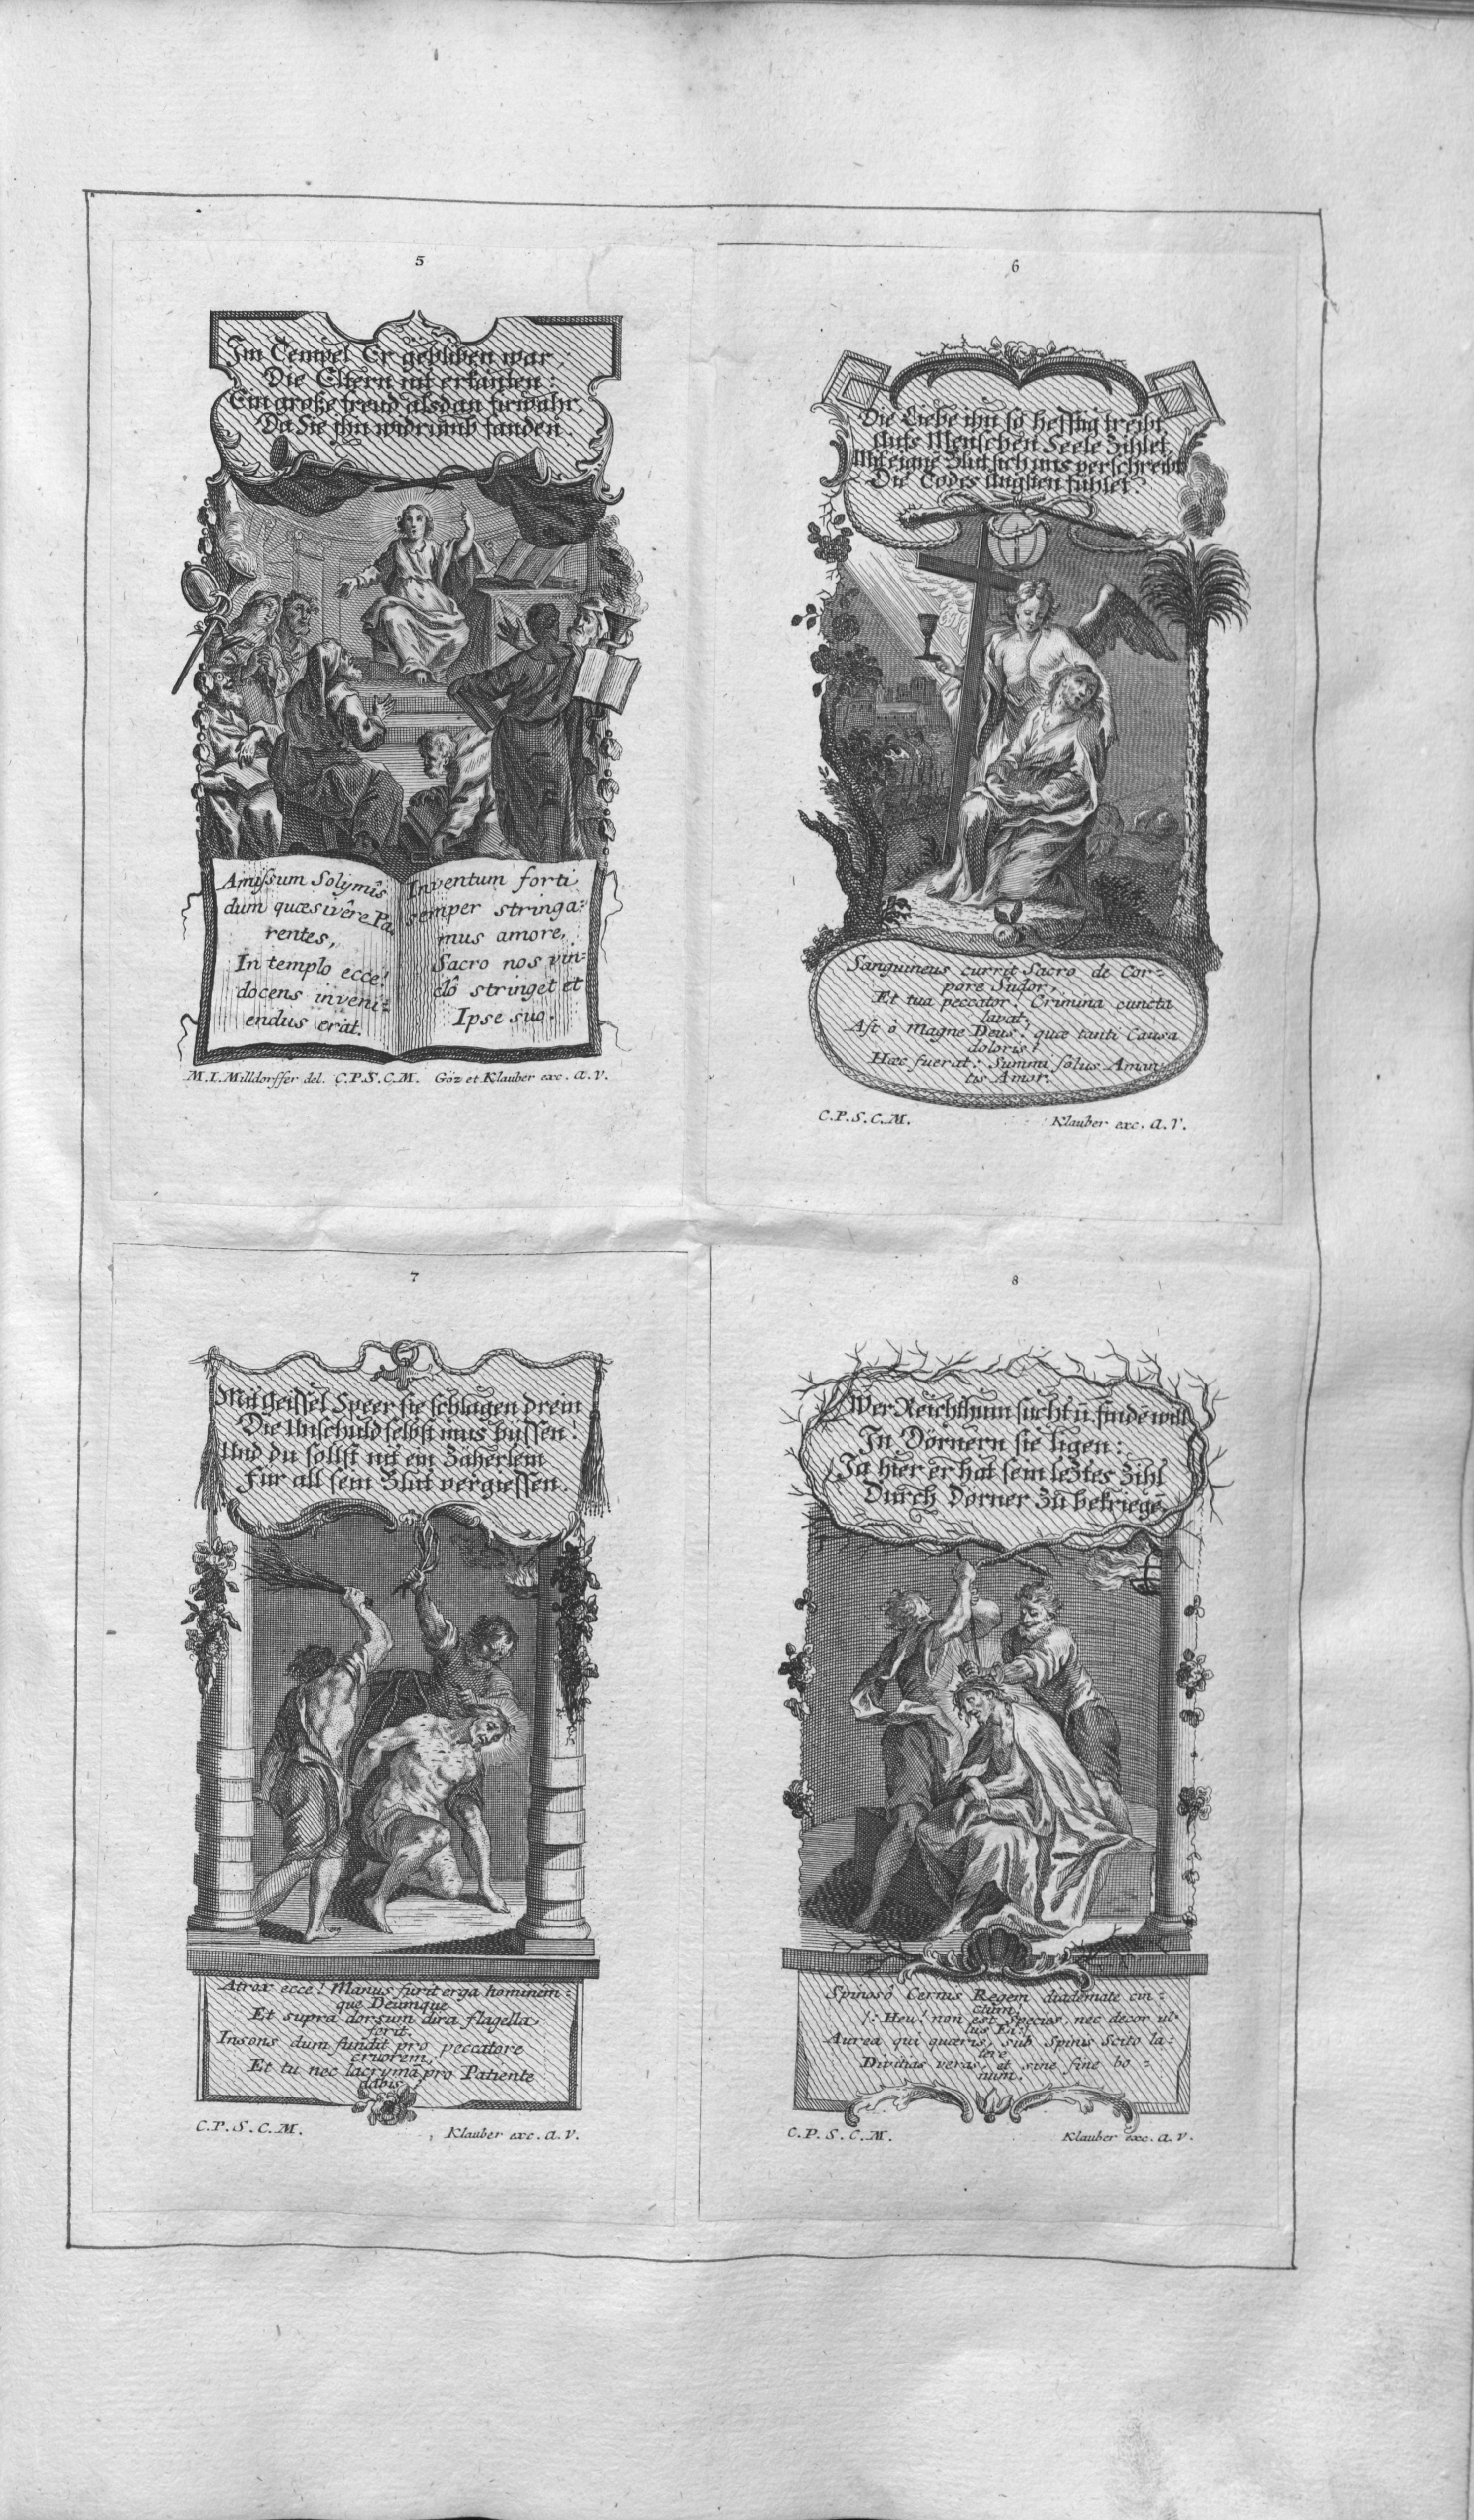 5
Im Tempel Er gebliben war,
Die Eltern nit erkanten:
Ein große freud alsdan fürwahr,
Da Sie ihn widrumb fanden.
Amissum Solymîs
dum quæsivêre Pa-
rentes,
In templo ecce!
docens inveni-
endus erat.
Inventum forti
semper stringa-
mus amore,
Sacro nos vin-
clô stringet et
Ipse suo.
M.I. Milldorffer del. C.P.S.C.M. Göz et Klauber exc. A.V.
6
Die Liebe ihn so hefftig treibt,
Aufs Menschen Seele Zihlet,
Mit eigne Blut sich uns verschreibt
Die Todts Ängsten fühlet.
Sanguineus currit Sacro de Cor-
pore Sudor,
Et tua peccator! Crimina cuncta
lavat.
Ast ô Magne Deus! quæ tanti Causa
doloris?
Hæc fuerat: Summi solus Aman-
tis Amor.
C.P.S.C.M. Klauber exc. A.V.
7
Mit Geissel Speer sie schlagen drein
Die Unschuld selbst mus byssen!
Und du sollst nit ein Zäherlein
Für all sein Blut vergiessen.
Atrox ecce! Manus furit erga hominem-
que Deumque
Et supra dorsum dira flagella
ferit.
Insons dum fundit pro peccatore
cruorem,
Et tu nec lacrymâ pro Patiente
dabis?
C.P.S.C.M. Klauber exc. A.V.
8
Wer Reichthum sucht ū. findē will
In Dörnern sie ligen:
Ja hier er hat sein leztes Zihl
Durch Dörner Zu bekriegē.
Spinosô Cernis Regem diademate cin-
ctum!
/: Heu! non est Species, nec decor ul-
lus Ei:/
Aurea qui quæris, sub Spinis Scito la-
tere
Divitias veras, et sine fine bo-
num.
C.P.S.C.M. Klauber exc. A.V.